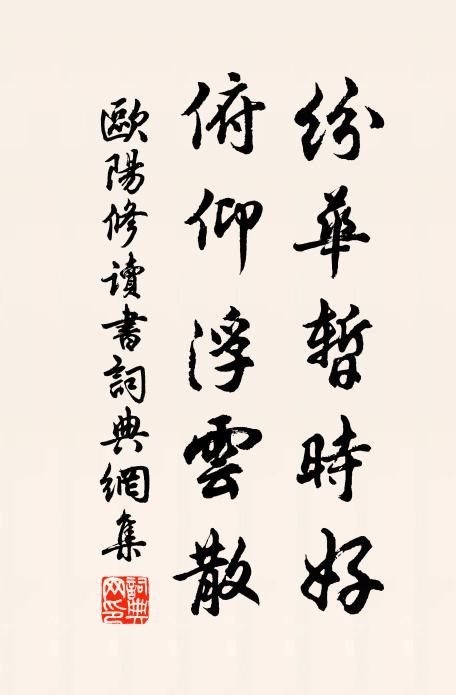 紛華暫時好
俯仰浮雲散
歐陽修讀書詞典網集
詞典網印